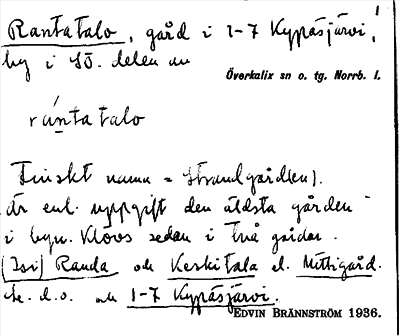 Rantatalo, gård i 1-7 Kypäsjärvi,
by i SÖ. delen av
Överkalix sn o. tg. Norrb. l.
rántatalo
Finskt namn = Strandgård(en).
Är enl. uppgift den äldsta gården
i byn. Klövs sedan i två gårdar.
(Isi) Randa och Keskitalo el. Mittigård.
Se. d.o. och 1-7 Kypäsjärvi.
EDVIN BRÄNNSTRÖM 1936.